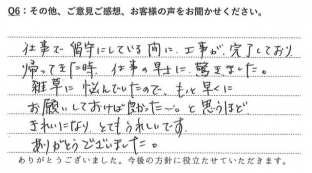 Q6：その他、ご意見ご感想、お客様の声をお聞かせください。
仕事で留守にしている間に、工事が完了しており
帰ってきた時、仕事の早さに驚きました。
雑草に悩んでいたので、もっと早くに
お願いしておけば良かった〜。と思うほど
きれいになり、とてもうれしいです。
ありがとうございました。
ありがとうございました。今後の方針に役立たせていただきます。